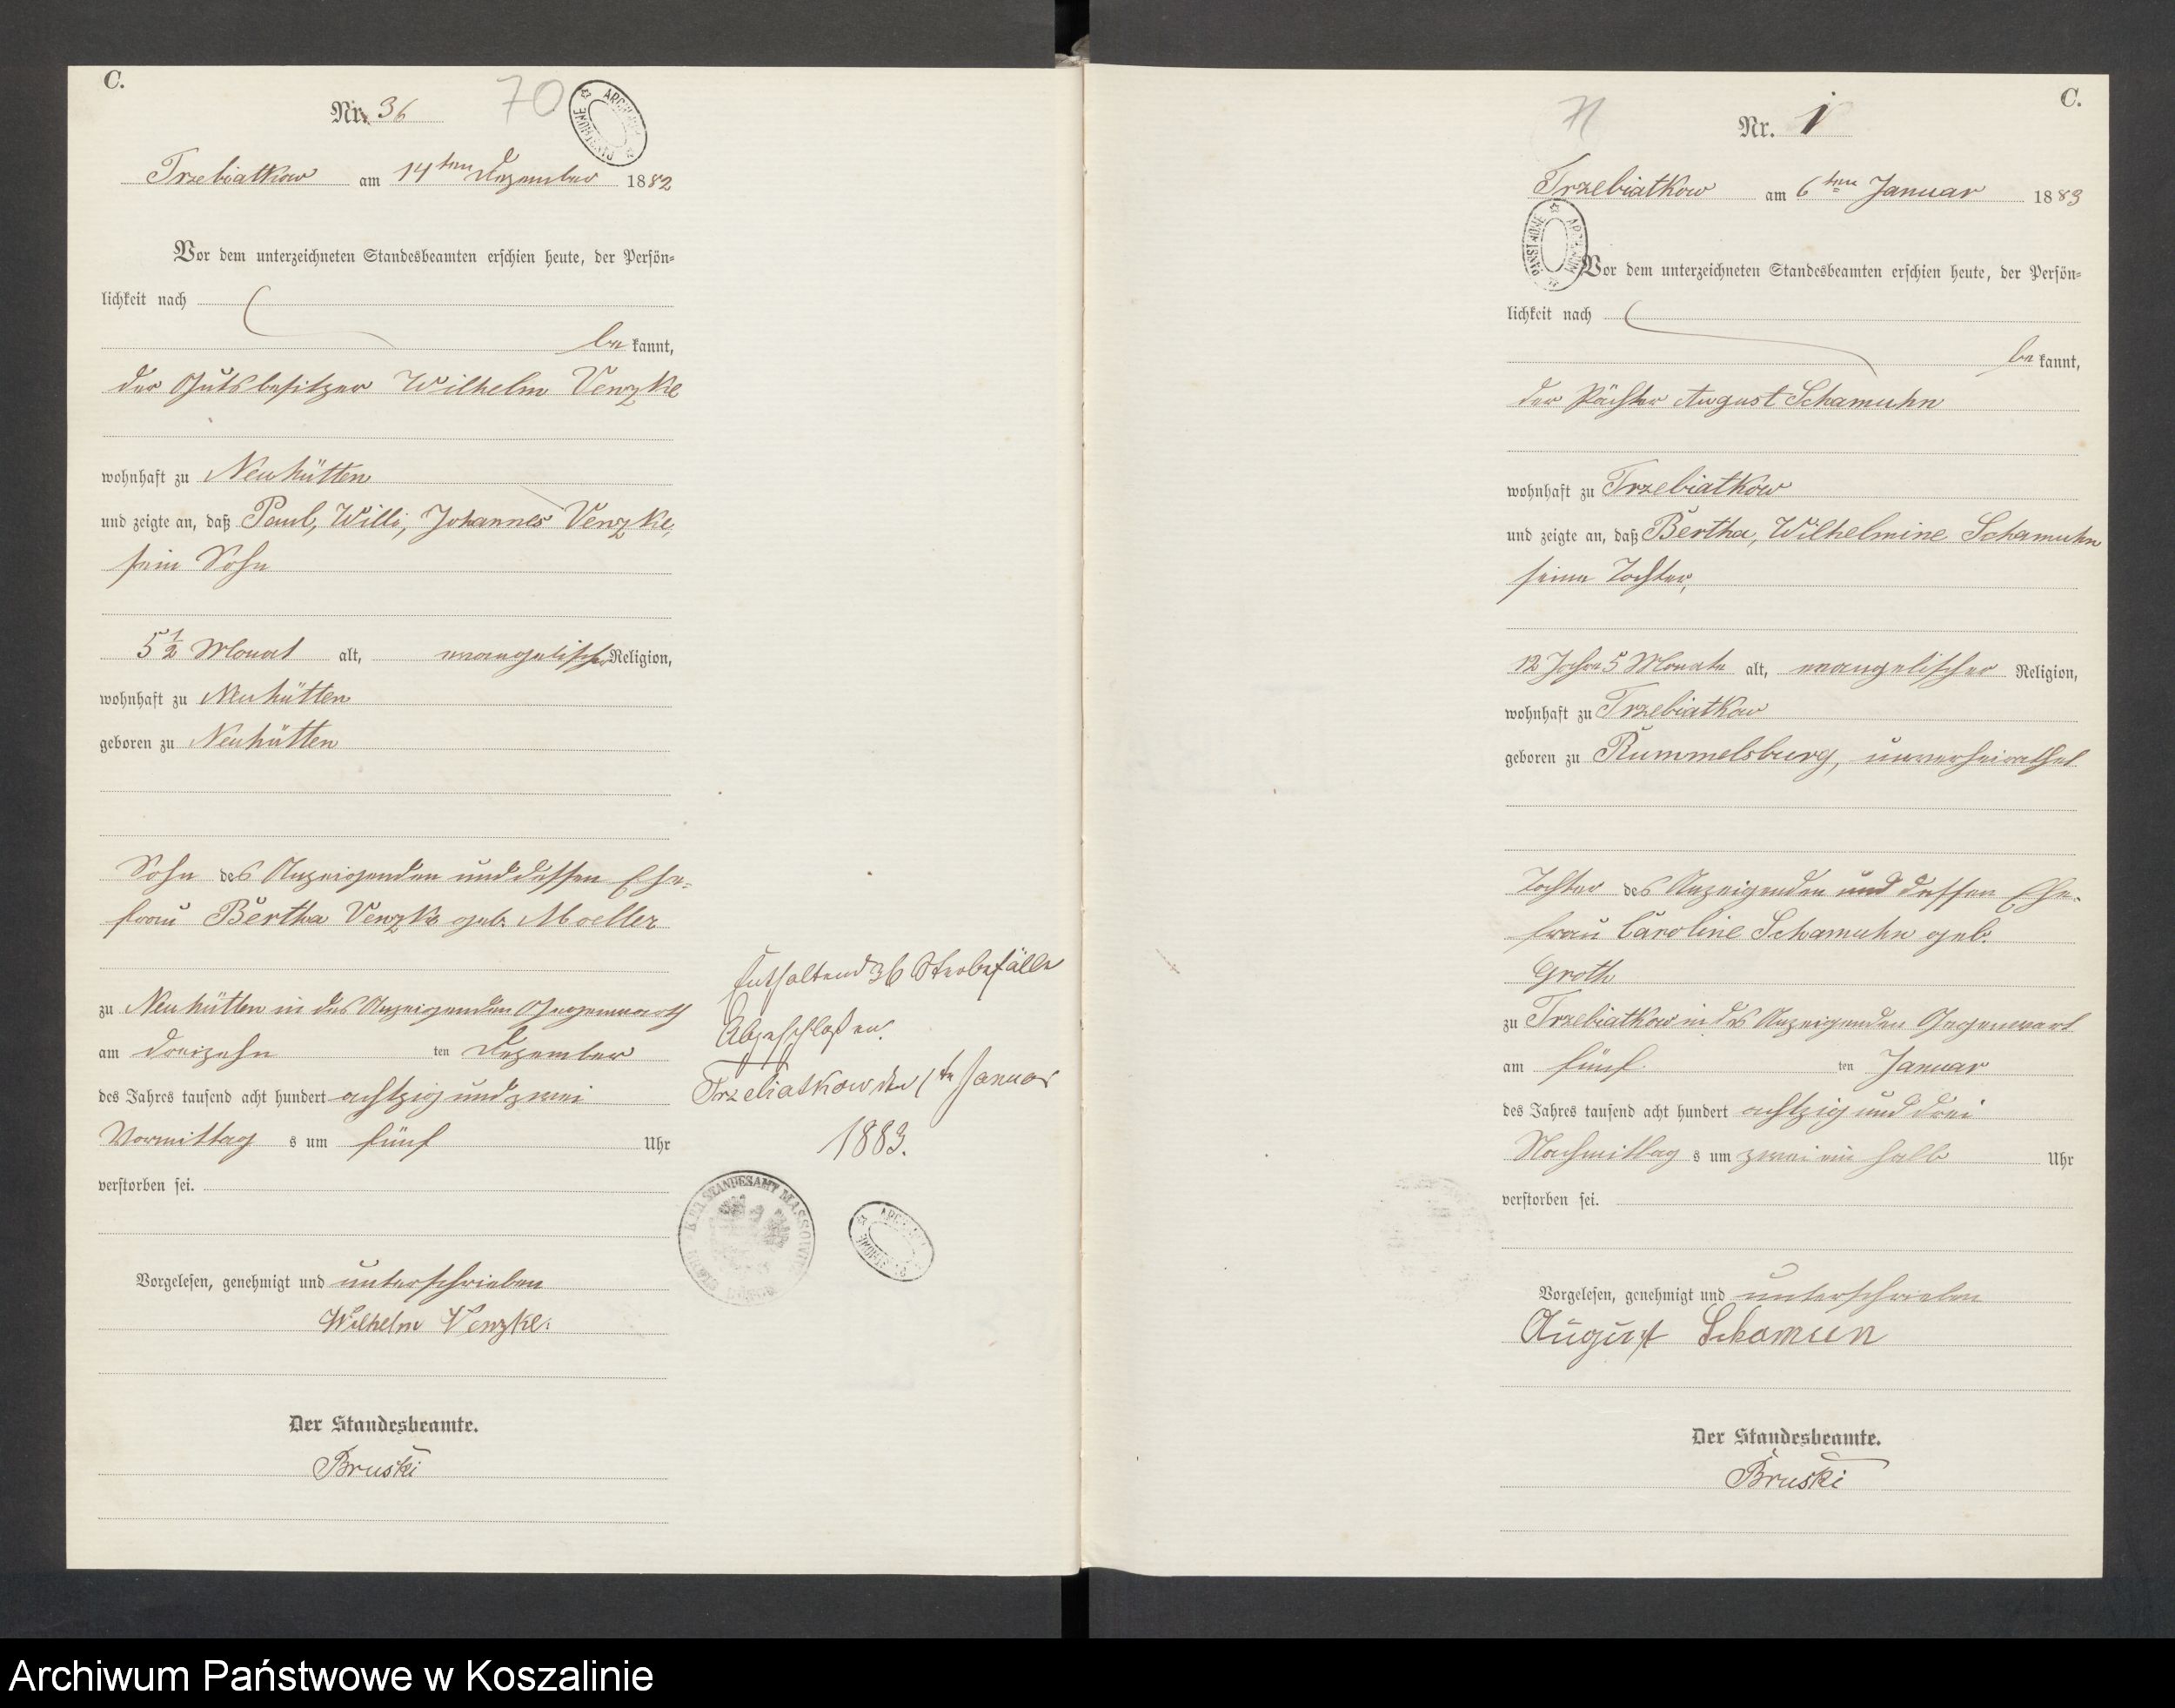 C.
Nr. 36
70
Trzebiatkow am 14ten Dezember 1882
Vor dem unterzeichneten Standesbeamten erschien heute, der Persön-
lichkeit nach
be kannt,
der Gutsbesitzer Wilhelm Venzke
wohnhaft zu Neuhütten
und zeigte an, daß Paul, Willi, Johannes Venzke,
sein Sohn
5 1/2 Monat alt, evangelischer Religion,
wohnhaft zu Neuhütten
geboren zu Neuhütten
Sohn des Anzeigenden und dessen Ehe-
frau Bertha Venzke geb. Moeller
zu Neuhütten in des Anzeigenden Gegenwart
am dreizehn ten Dezember
des Jahres tausend acht hundert achtzig und zwei
Vormittag s um fünf Uhr
verstorben sei.
Vorgelesen, genehmigt und unterschrieben
Wilhelm Venzke.
Der Standesbeamte.
Bruski
Enthaltend 36 Sterbefälle
Abgeschloßen.
Trzebiatkow den 1te Januar
1883.
STANDESAMT MASSOWITZ
C.
71
Nr. 1
Trzebiatkow am 6ten Januar 1883
ARCHIWUM PAŃSTWOWE
Vor dem unterzeichneten Standesbeamten erschien heute, der Persön-
lichkeit nach
be kannt,
der Pächter August Schamuhn
wohnhaft zu Trzebiatkow
und zeigte an, daß Bertha, Wilhelmine Schamuhn
seine Tochter,
12 Jahre 5 Monate alt, evangelischer Religion,
wohnhaft zu Trzebiatkow
geboren zu Rummelsburg, unverheirathet
Tochter des Anzeigenden und dessen Ehe-
frau Caroline Schamuhn geb.
Groth
zu Trzebiatkow in des Anzeigenden Gegenwart
am fünf ten Januar
des Jahres tausend acht hundert achtzig und drei
Nachmittag s um zwei ein halb Uhr
verstorben sei.
Vorgelesen, genehmigt und unterschrieben
August Schamuн
Der Standesbeamte.
Bruski
Archiwum Państwowe w Koszalinie